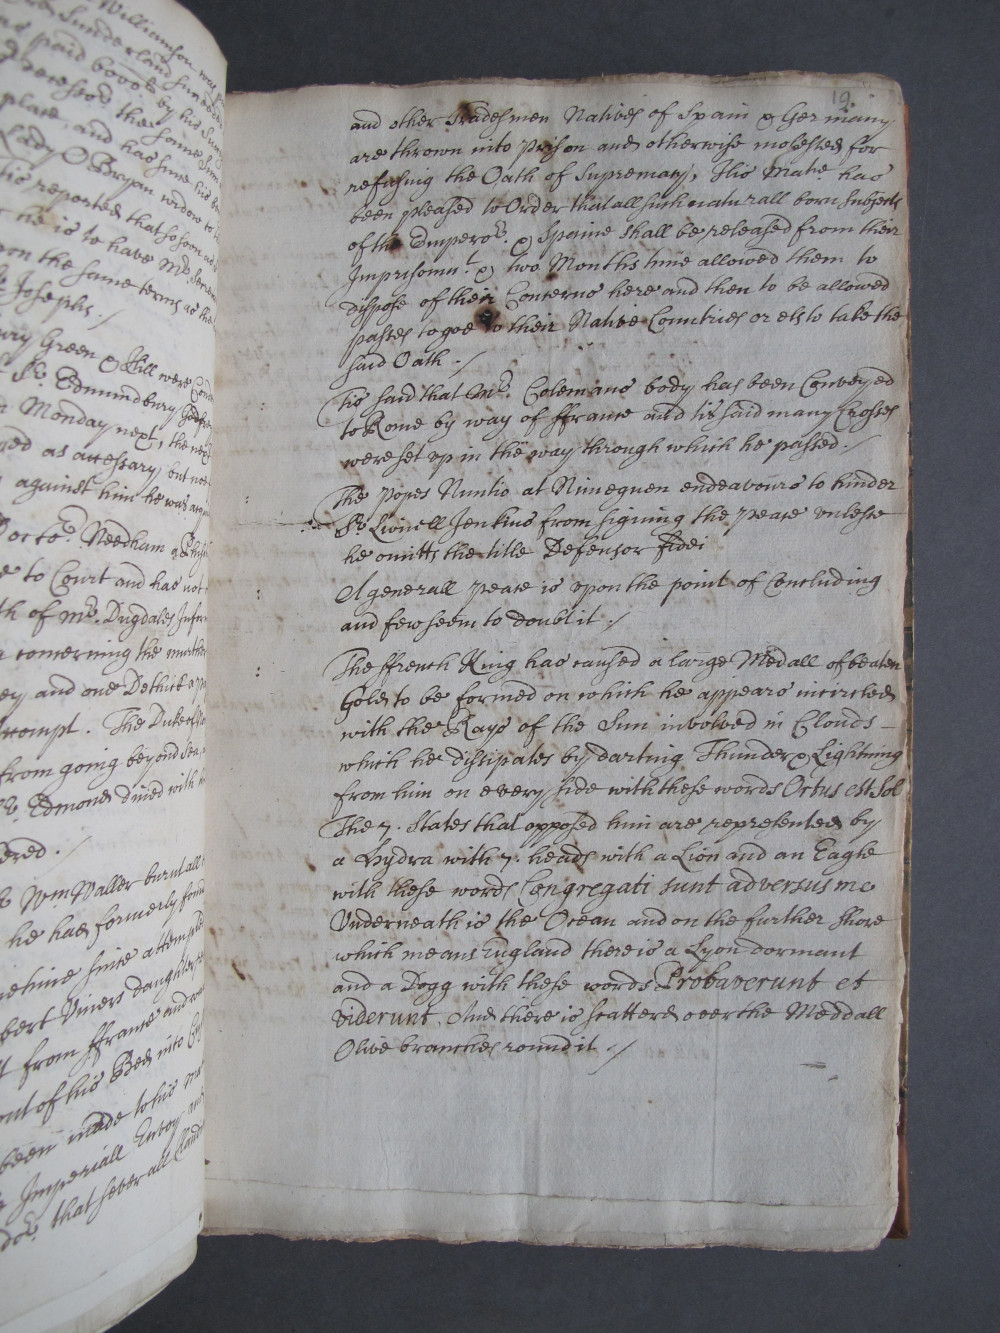 Williamson was
Sunderland
paid 8000£ by his
the same
place, and has since his
Lady O Bryan widow to
Tis reported that so soon as
he is to have Mr.
upon the same terms as the
Josephs /
bury Green & Hill were
Sr. Edmundbury Godfrey
Monday next, the next
as accessary, but no
against him he was
Doctor. Needham a
to Court and has not
of Mr. Dugdales
concerning the murther
and one Dethick a
. The Duke of
from going beyond Sea,
Sr. Edmond dined with

Wm Waller burnt all
he had formerly
time since attempted
Viners daughter,
from ffrance and
out of his Bed into
been made to his
Imperiall Envoy and
that severall
19.
and other Tradesmen Natives of Spain & Germany
are thrown into prison and otherwise molested for
refusing the Oath of Supremacy, His Matie. has
been pleased to Order that all such naturall born Subjects
of the Emperor. & Spaine shall be released from their
Imprisonmt. & two Months time allowed them to
dispose of their Concerns here and then to be allowed
passes to goe to their Native Countries or els to take the
said Oath . /
Tis said that Mr. Colemans body has been Conveyed
to Rome by way of ffrance and tis said many Crosses
were set up in the way through which he passed . /
The Popes Nuntio at Nimeguen endeavours to hinder
Sr. Lionell Jenkins from signing the peace unlesse
he omitts the title Defensor fidei
A generall peace is upon the point of Concluding
and few seem to doubt it . /
The ffrench King has caused a large Medall of beaten
Gold to be formed on which he appears incircled
with the Rays of the Sun involved in Clouds –
which he dissipates by darting Thunder & Lightning
from him on every side with these words Ortus est Sol
The 7. States that opposed him are represented by
a Hydra with 7. heads with a Lion and an Eagle
with these words Congregati sunt adversus me
Underneath is the Ocean and on the further shore
which means England there is a Lyon dormant
and a Dogg with these words Probaverunt et
viderunt. And there is scattered over the Meddall
Olive branches round it . /